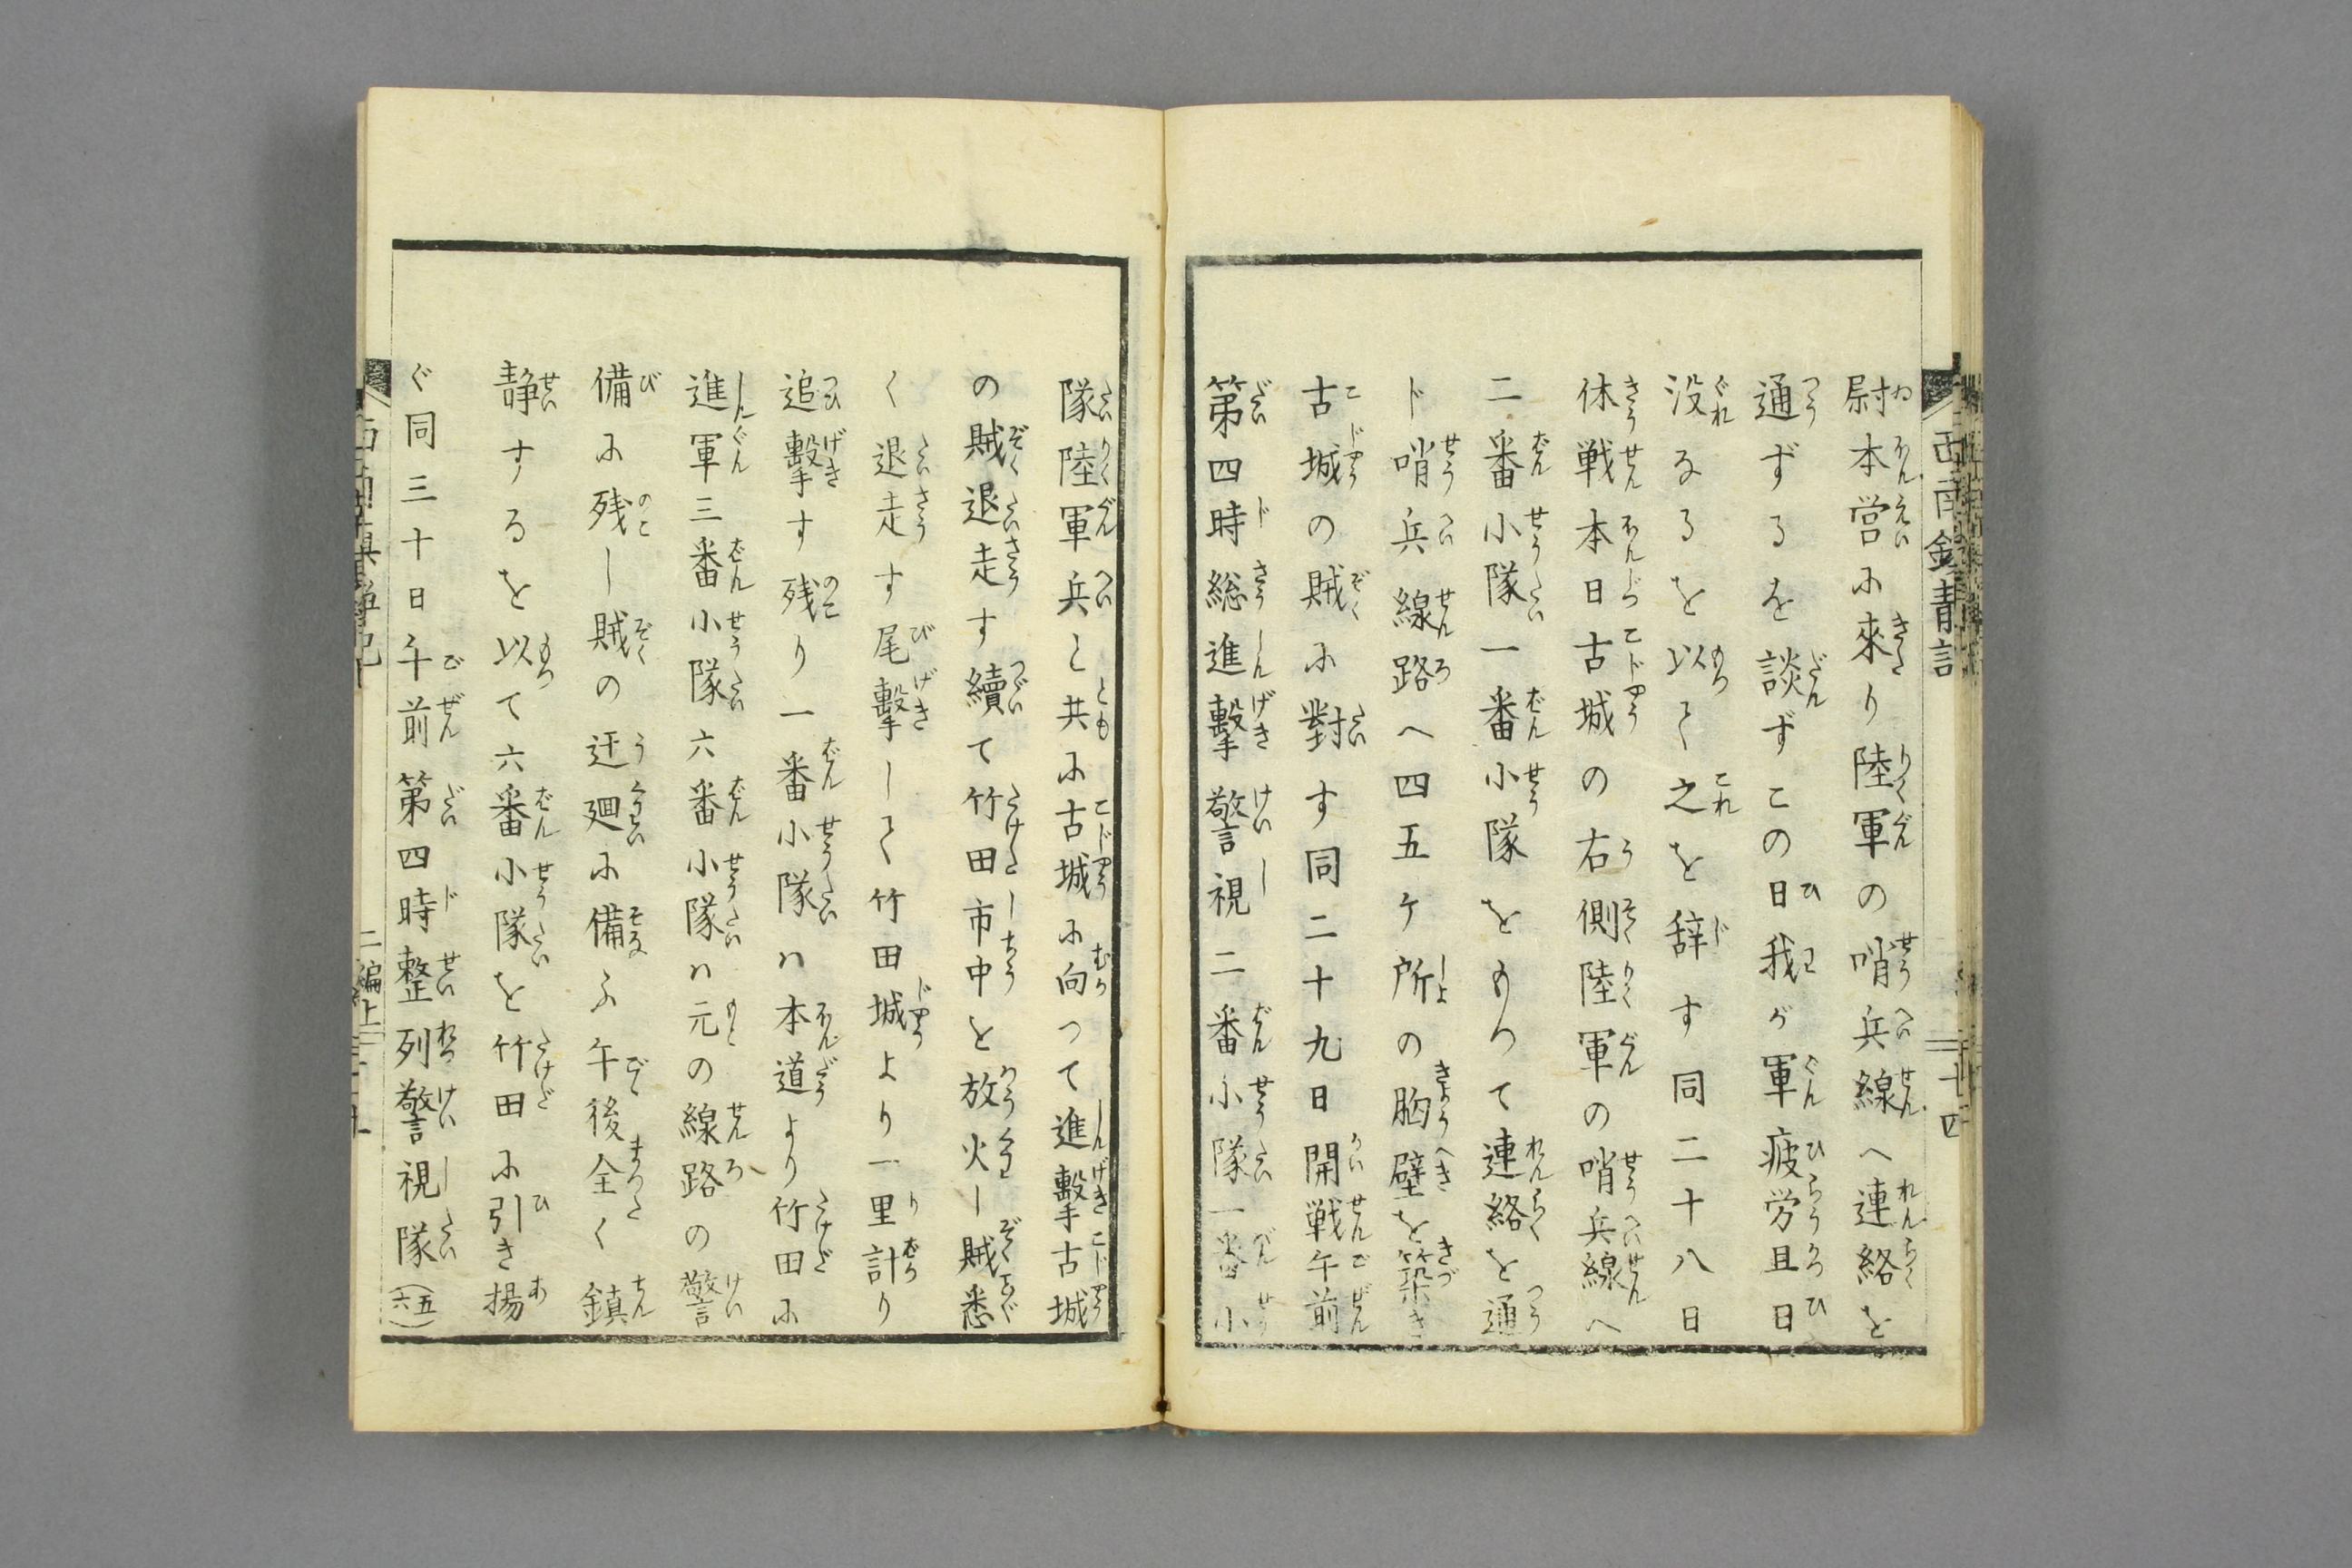 尉本営に來り陸軍の哨兵線へ連絡を
通ずるを談ずこの日我が軍疲労且日
没なるを以て之を辞す同二十八日
休戦本日古城の右側陸軍の哨兵線へ
二番小隊一番小隊をもつて連絡を通
ド哨兵線路へ四五ケ所の胸壁を築き
古城の賊に對す同二十九日開戦午前
第四時総進擊警視二番小隊一番小
隊陸軍兵と共に古城に向つて進擊古城
の賊退走す續て竹田市中を放火し賊悉
く退走す尾擊して竹田城より一里計り
追擊す残り一番小隊ハ本道より竹田に
進軍三番小隊六番小隊ハ元の線路の警
備に残し賊の迂廻に備ふ午後全く鎮
静するを以て六番小隊を竹田に引き揚
ぐ同三十日午前第四時整列警視隊(五六)
二編上